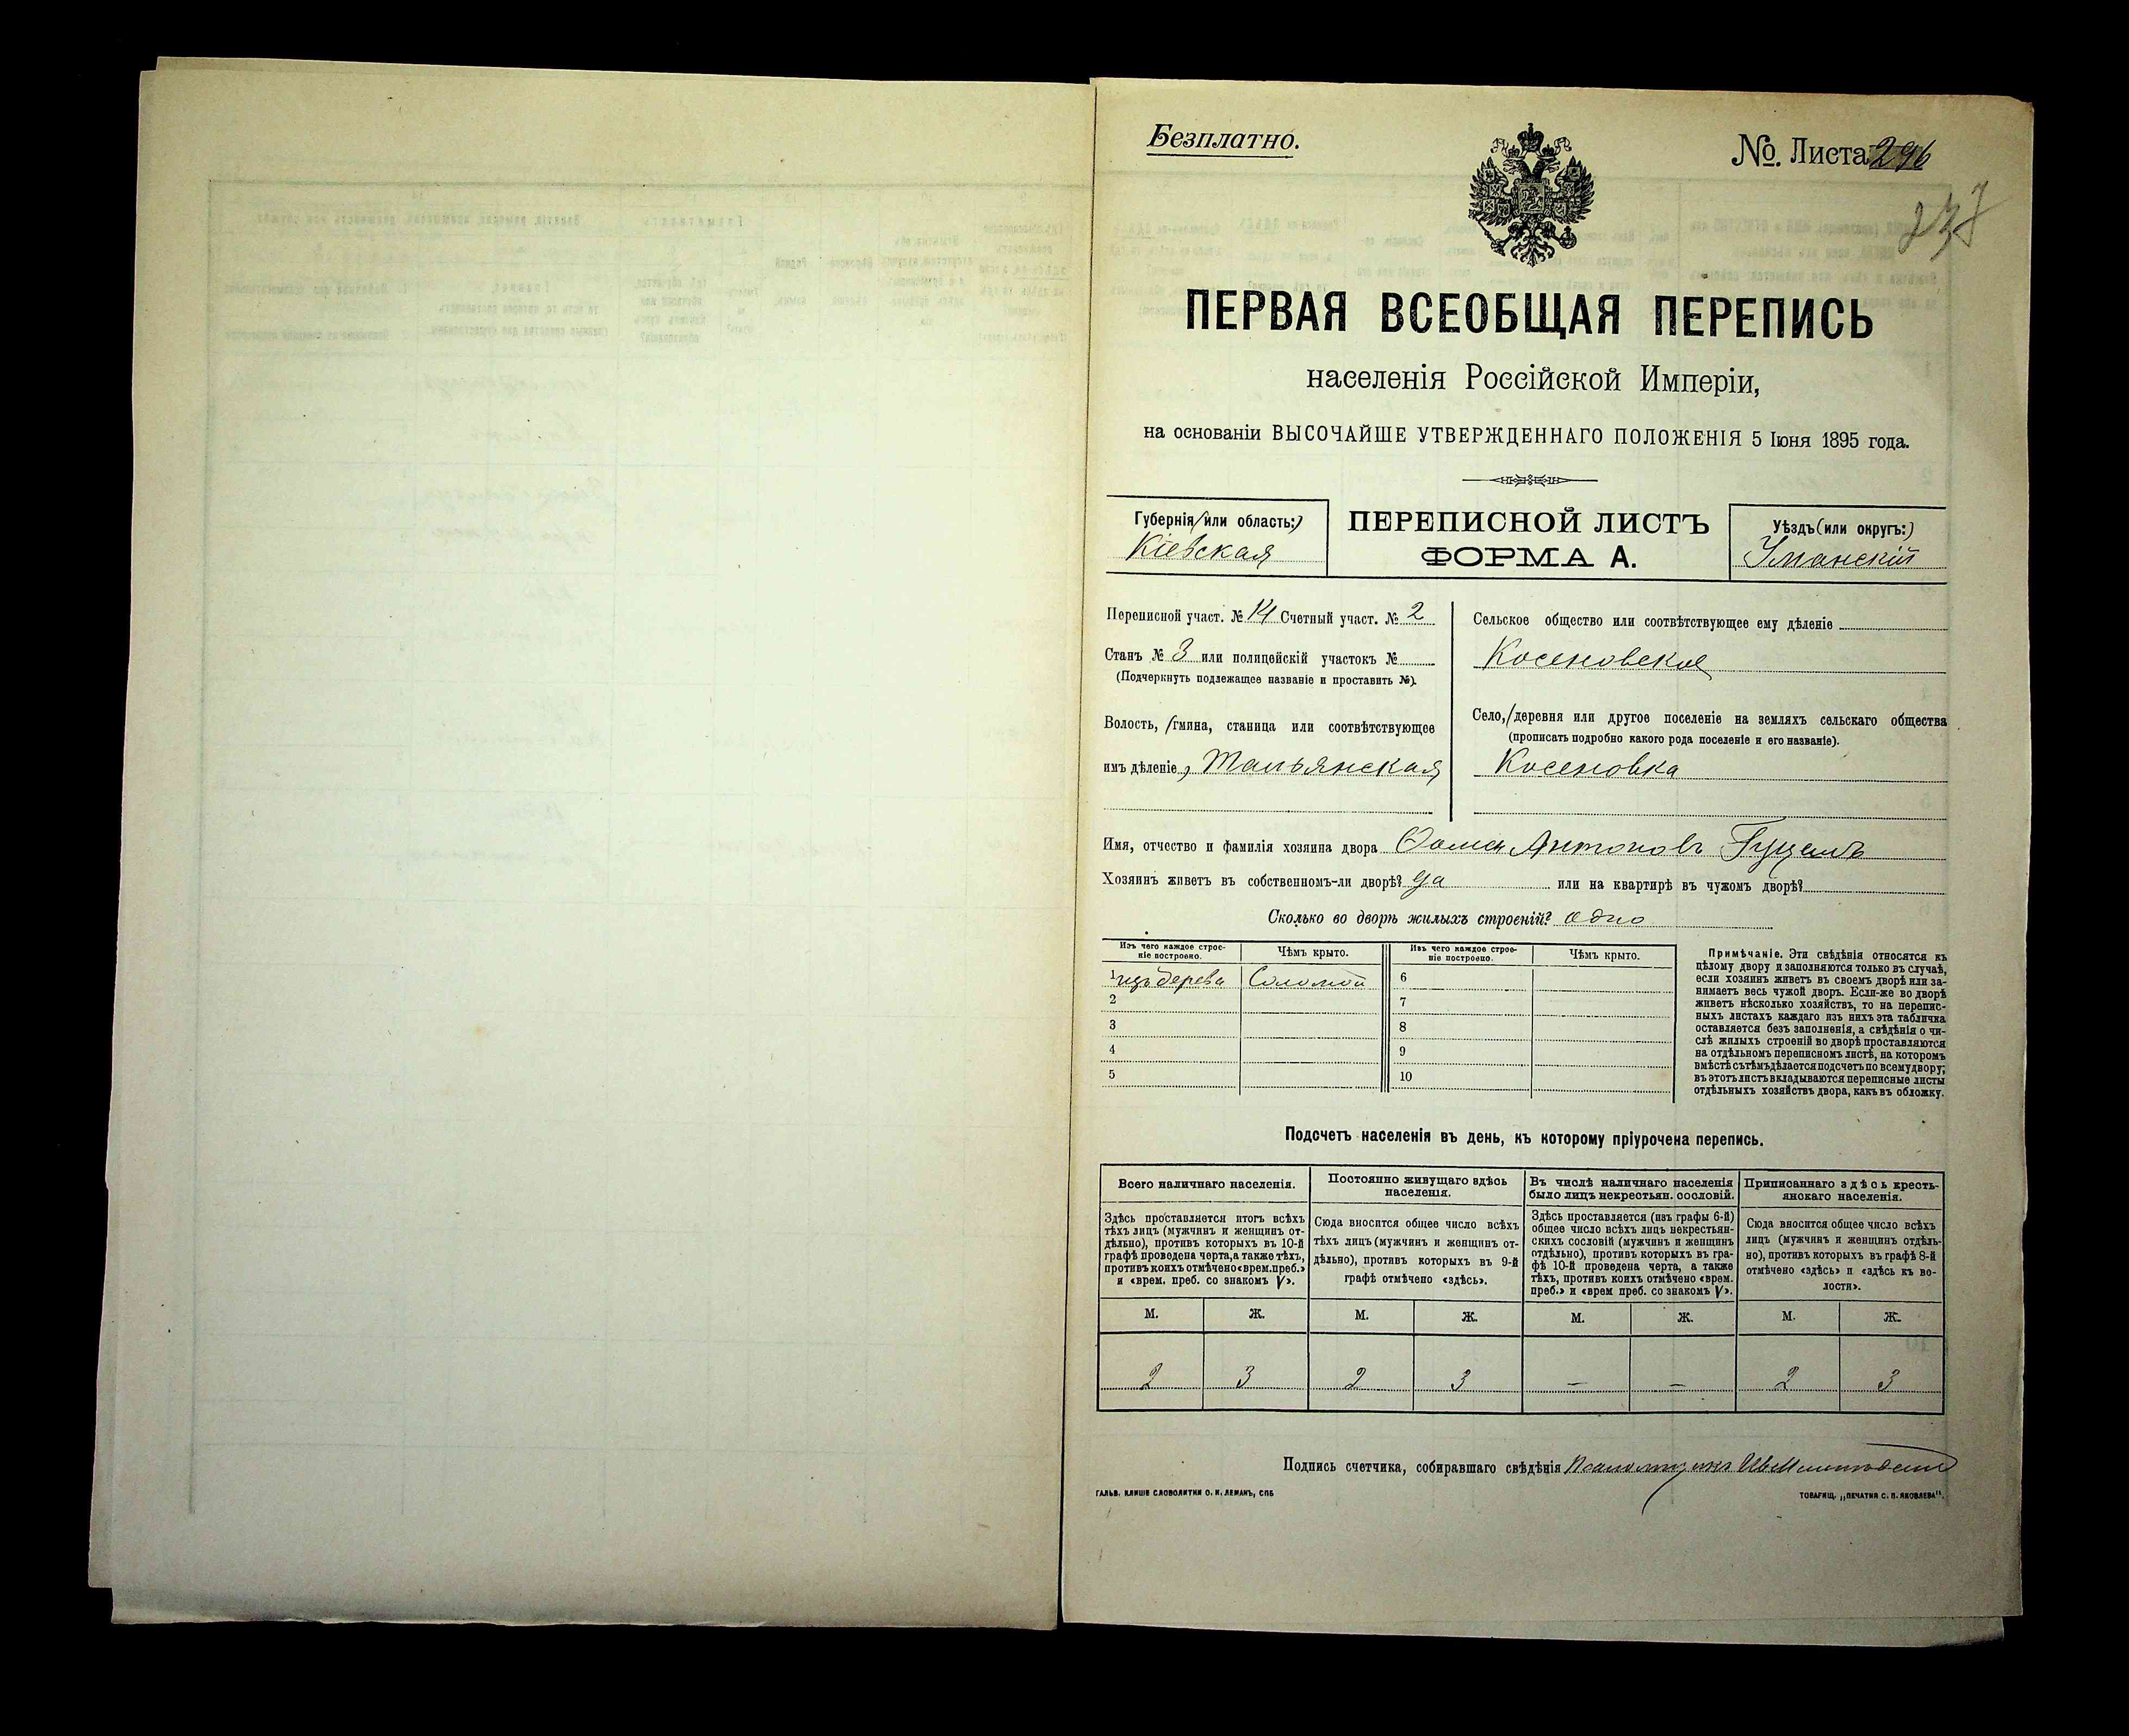 Безплатно.
№. Листа 296
237
ПЕРВАЯ ВСЕОБЩАЯ ПЕРЕПИСЬ
населенія Россійской Имперіи,
на основаніи ВЫСОЧАЙШЕ УТВЕРЖДЕННАГО ПОЛОЖЕНІЯ 5 Іюня 1895 года.
Губернія (или область:)
Кіевская
ПЕРЕПИСНОЙ ЛИСТЪ
ФОРМА А.
Уѣздъ (или округъ:)
Уманскій
Переписной участ. № 14 Счетный участ. № 2
Станъ № 3 или полицейскій участокъ №
(Подчеркнуть подлежащее названіе и проставить №).
Волость, гмина, станица или соотвѣтствующее
имъ дѣленіе, Тальянская
Сельское общество или соотвѣтствующее ему дѣленіе
Косеновское
Село, деревня или другое поселеніе на земляхъ сельскаго общества
(прописать подробно какого рода поселеніе и его названіе).
Косеновка
Имя, отчество и фамилія хозяина двора Ѳома Антоновъ
Хозяинъ живетъ въ собственномъ-ли дворѣ? Да или на квартирѣ въ чужомъ дворѣ?
Сколько во дворѣ жилыхъ строеній? одно
Изъ чего каждое строе-
ніе построено.
Чѣмъ крыто.
Изъ чего каждое строе-
ніе построено.
Чѣмъ крыто.
1 изъ дерева Соломой 6
2 7
3 8
4 9
5 10
Примѣчаніе. Эти свѣдѣнія относятся къ
цѣлому двору и заполняются только въ случаѣ,
если хозяинъ живетъ въ своемъ дворѣ или за-
нимаетъ весь чужой дворъ. Если-же во дворѣ
живетъ нѣсколько хозяйствъ, то на перепис-
ныхъ листахъ каждаго изъ нихъ эта табличка
оставляется безъ заполненія, а свѣдѣнія о чи-
слѣ жилыхъ строеній во дворѣ проставляются
на отдѣльномъ переписномъ листѣ, на которомъ
вмѣстѣ съ тѣмъ дѣлается подсчетъ по всему двору;
въ этотъ листъ вкладываются переписные листы
отдѣльныхъ хозяйствъ двора, какъ въ обложку.
Подсчетъ населенія въ день, къ которому пріурочена перепись.
Всего наличнаго населенія.
Здѣсь проставляется итогъ всѣхъ
тѣхъ лицъ (мужчинъ и женщинъ от-
дѣльно), противъ которыхъ въ 10-й
графѣ проведена черта, а также тѣхъ,
противъ коихъ отмѣчено «врем. преб.»
и «врем. преб. со знакомъ V».
Постоянно живущаго здѣсь
населенія.
Сюда вносится общее число всѣхъ
тѣхъ лицъ (мужчинъ и женщинъ от-
дѣльно), противъ которыхъ въ 9-й
графѣ отмѣчено «здѣсь».
Въ числѣ наличнаго населенія
было лицъ некрестьян. сословій.
Здѣсь проставляется (изъ графы 6-й)
общее число всѣхъ лицъ некрестьян-
скихъ сословій (мужчинъ и женщинъ
отдѣльно), противъ которыхъ въ гра-
фѣ 10-й проведена черта, а также
тѣхъ, противъ коихъ отмѣчено «врем.
преб.» и «врем преб. со знакомъ V».
Приписаннаго здѣсь кресть-
янскаго населенія.
Сюда вносится общее число всѣхъ
лицъ (мужчинъ и женщинъ отдѣль-
но), противъ которыхъ въ графѣ 8-й
отмѣчено «здѣсь» и «здѣсь къ во-
лости».
М. Ж. М. Ж. М. Ж. М. Ж.
2 3 2 3 — — 2 3
Подпись счетчика, собиравшаго свѣдѣнія
ГАЛЬВ. КЛИШЕ СЛОВОЛИТНИ О. И. ЛЕМАНЪ, СПБ
ТОВАРИЩ. „ПЕЧАТНЯ С. П. ЯКОВЛЕВА".